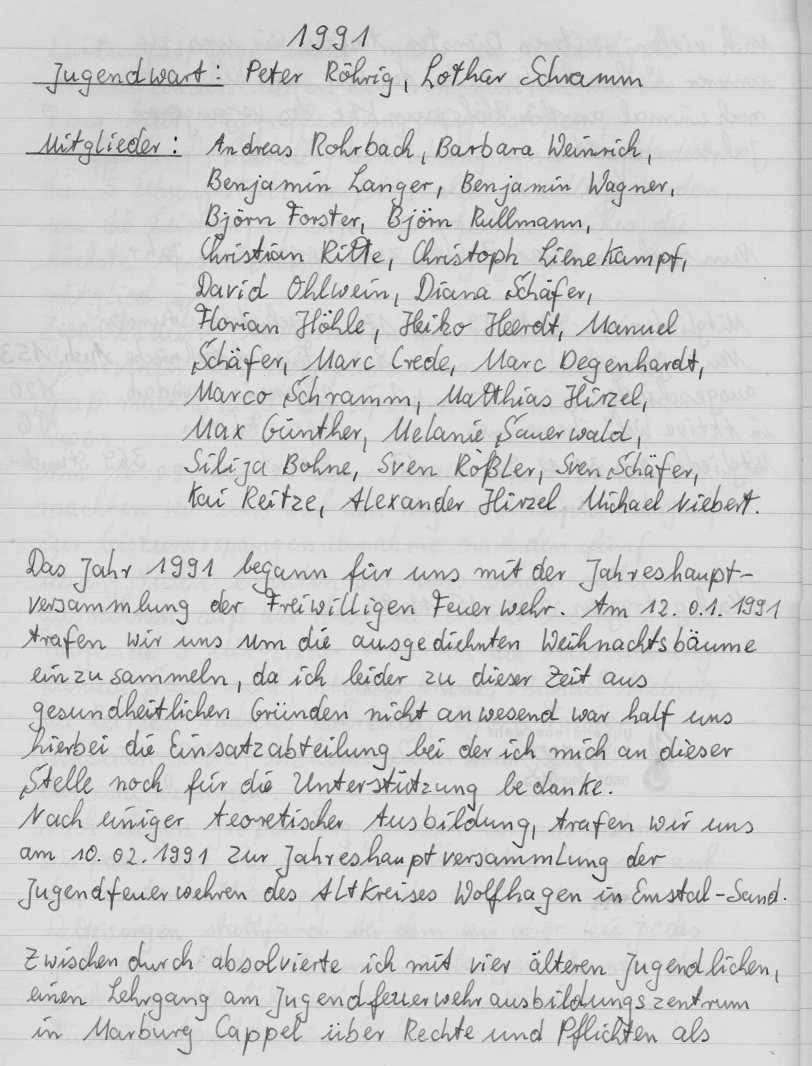 1991
Jugendwart: Peter Röhrig, Lothar Schramm
Mitglieder: Andreas Rohrbach, Barbara Weinrich,
Benjamin Langer, Benjamin Wagner,
Björn Forster, Björn Rullmann,
Christian Ritte, Christoph Lienekampf,
David Ohlwein, Diana Schäfer,
Florian Höhle, Heiko Heerdt, Manuel
Schäfer, Marc Crede, Marc Degenhardt,
Marco Schramm, Matthias Hirzel,
Max Günther, Melanie Sauerwald,
Silija Bohne, Sven Rößler, Sven Schäfer,
Kai Reitze, Alexander Hirzel Michael Niebert.
Das Jahr 1991 begann für uns mit der Jahreshaupt-
versammlung der Freiwilligen Feuerwehr. Am 12.01.1991
trafen wir uns um die ausgediehnten Weihnachtsbäume
einzusammeln, da ich leider zu dieser Zeit aus
gesundheitlichen Gründen nicht anwesend war half uns
hierbei die Einsatzabteilung bei der ich mich an dieser
Stelle noch für die Unterstützung bedanke.
Nach einiger teoretischer Ausbildung, trafen wir uns
am 10.02.1991 zur Jahreshauptversammlung der
Jugendfeuerwehren des Altkreises Wolfhagen in Emstal-Sand.
Zwischendurch absolvierte ich mit vier älteren Jugendlichen,
einen Lehrgang am Jugendfeuerwehrausbildungszentrum
in Marburg Cappel über Rechte und Pflichten als